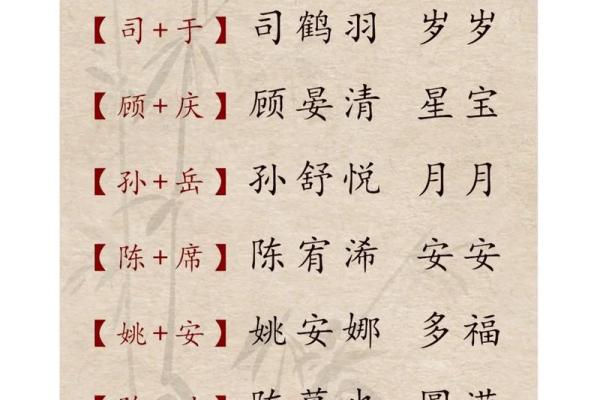 【司+于】 司鹤羽 岁岁
【顾+庆】 顾晏清 星宝
【孙+岳】 孙舒悦 月月
【陈+席】 陈宥浠 安安
【姚+安】 姚安娜 多福